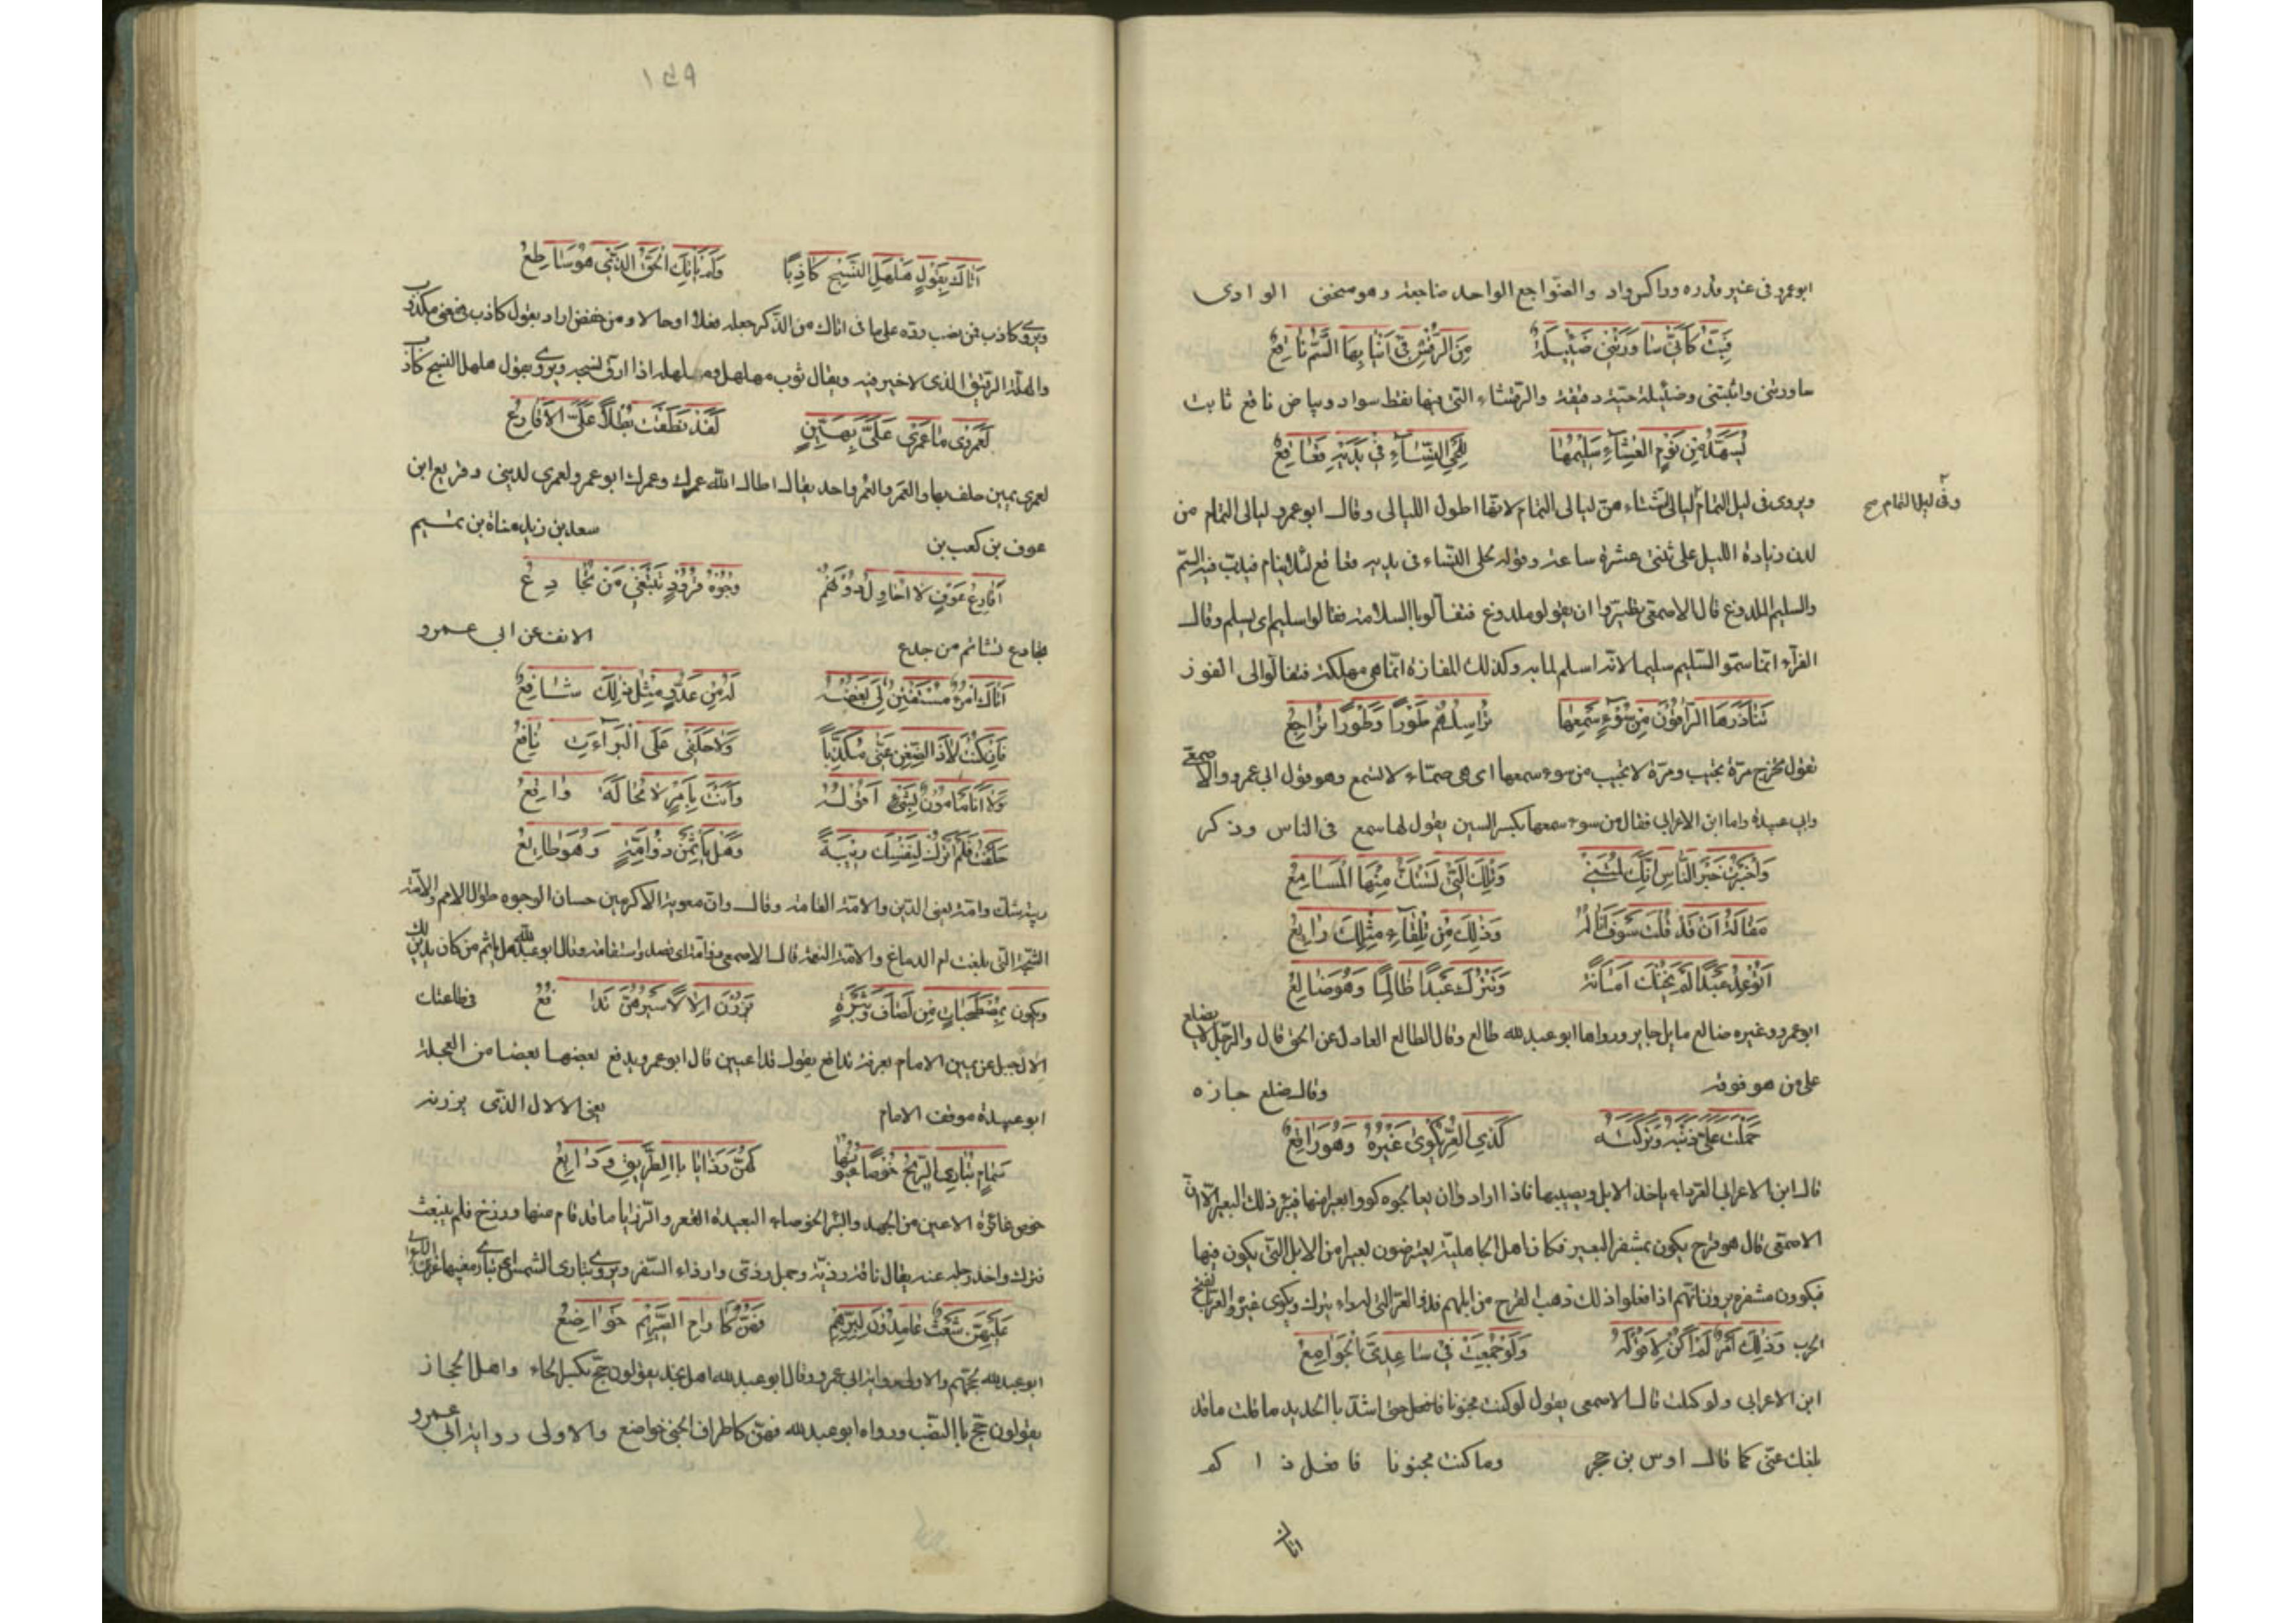 ابو عمرو فى غير قدره وراكس واد والضواجع الواحد ضاجعة وهو منحنى الوادى
فَبِتُّ كَاَنِّى سَاوَرَتْنِى ضَئِيلَةٌ مِنَ الرُّقْشِ فِى اَنْيَابِهَا السَّمُّ نَاقِعُ
ساورتنى واثبتنى وضئيلة حية دقيقة والرقشاء التى فيها نقط سواد وبياض ناقع ثابت
يُسَهَّدُ مِن نَوْمِ العِشَاءِ سَلِيمُهَا لِحَلْىِ النِّسَاءِ فِى يَدَيْهِ قَعَاقِعُ
ويروى فى ليل التمام ليالى الشتاء من ليالى التمام لانها اطول الليالى وقال ابو عمرو ليالى التمام من
وفى ليل التمام صح
لدن زيادة الليل على ثنتى عشرة ساعة وقوله لحلى النساء فى يديه قعاقع لئلا ينام فيدب فيه السم
والسليم الملدوغ قال الاصمعى تطيروا ان يقولو ملدوغ فتفآلوا باالسلامة فقالوا سليم اى يسلم وقال
الفرآء انما سمو السليم سليما لانه اسلم لما به وكذلك المفازة انما هى مهلكة فتفالوا الى الفوز
تَنَاذَرَهَا الرَّاقُوْنَ مِن سُوْءِ سَمْعِهَا تُرَاسِلُهُمْ طَوْرًا وَطَوْرًا تُرَاجِعُ
تقول تخرج مرة تجيب ومرة لا تجيب من سوء سمعها اى هى صماء لا تسمع وهو قول ابى عمرو والاصمعى
وابى عبيدة واما ابن الاعرابى فقال من سوء سمعها بكسر السين يقول لها سمع فى الناس وذكر
وَاُخْبِرْتُ خَيْرَ النَّاسِ اَنَّكَ لُمْتَنِى وَتِلْكَ الَّتِى تَسْتَكُّ مِنْهَا الْمَسَامِعُ
مَقَالَةُ اَنْ قَدْ قُلْتَ سَوْفَ اَنَالُهُ وَذٰلِكَ مِن تِلْقَاءِ مِثْلِكَ رَائِعُ
اَتُوْعِدُ عَبْدًا لَمْ يَخُنْكَ اَمَانَةً وَتَتْرُكُ عَبْدًا ظَالِمًا وَهُوَ ضَالِعُ
ابو عمرو وغيره ضالع مايل جاير ورواها ابو عبد لله ظالع وقال الظالع العادل عن الحق قال والرجل لا يضلع
على من هو فوقه وقال ضلع جازه
حَمَلْتَ عَلَىَّ ذَنْبَهُ وَتَرَكْتَهُ كَذِى العُرِّ يُكْوَى غَيْرُهُ وَهُوَ رَاتِعُ
قال ابن الاعرابى العر داء ياخذ الابل ويصيبها فاذا ارادوا ان يعالجوه كووا بعيرا منها فيبرء ذلك البعير الا ان
الاصمعى قال هو قرح يكون بمشفر البعير فكان اهل الجاهلية يعترضون بعيرا من الابل التى يكون فيها
فيكوون مشفره يرون انهم اذا فعلوا ذلك ذهب القرح من ابلهم فذو العر الذى به داء يترك ويكوى غيره والعر بالفتح
الجرب وَذٰلِكَ اَمْرٌ لَمْ اَكُنْ لِاَقُوْلَهُ وَلَوْ جُمِّعَتْ فِى سَاعِدِىَّ الجَوَامِعُ
ابن الاعرابى ولو كبلت قال الاصمعى يقول لو كنت مجنونا فاغل حتى اشد باالحديد ما قلت ما قد
بلغك عنى كما قال اوس بن حجر وما كنت مجنونا فافعل ذاكه
اتاك
١٤٩
اَتَاكَ بِقَوْلٍ هَلْهَلِ النَّسْجِ كَاذِبًا وَلَمْ يَأْتِكَ الْحَقُّ الَّذِى هُوَ سَاطِعُ
ويروى كاذب فمن نصب رده على ما فى اتاك من الذكر جعله فعلا او حالا ومن خفض اراد بقول كاذب فى معنى مكذوب
والهلهل الرقيق الذى لا خير فيه ويقال ثوب مهلهل وهلهله اذا ارق نسجه ويروى بقول هلهل النسج كاذب
لَعَمْرِى وَمَا عَمْرِى عَلَىَّ بِهَيِّنٍ لَقَدْ نَطَقَتْ بُطْلًا عَلَىَّ الاَقَارِعُ
لعمرى يمين حلف بها والعمر والعمر واحد يقال اطال الله عمرك وعمرك ابو عمرو لعمرى لدينى وقريع ابن
عوف بن كعب بن سعد بن زيد مناة بن تميم
اَقَارِعُ عَوْفٍ لَا اُحَاوِلُ دُوْنَهُمْ وُجُوْهُ قُرُوْدٍ تَبْتَغِى مَنْ تُجَادِعُ
تجادع تشاتم من جدع الانف عن ابى عمرو
اَتَاكَ امْرُؤٌ مُسْتَبْطِنٌ لِى بِغْضَةً لَهُ مِن عَدُوٍّ مِثْلُ ذٰلِكَ شَافِعُ
فَاِن كُنْتَ لَا ذَا الضِّغْنِ عَنِّى مُكَذِّبًا وَلَا حَلِفِى عَلَى الْبَرَاءَةِ نَافِعُ
وَلَا اَنَا مَامُوْنٌ بِشَىْءٍ اَقُوْلُهُ وَاَنْتَ بِاَمْرٍ لَا مُحَالَةَ وَاقِعُ
حَلَفْتُ فَلَمْ اَتْرُكْ لِنَفْسِكَ رِيْبَةً وَهَلْ يَأْثَمَنْ ذُوْ اِمَّةٍ وَهُوَ طَائِعُ
ريبة شك وامة يعنى الدين والامة القامة وقال وان معوية الاكرمين حسان الوجوه طوال الامم والآمة
الشجة التى بلغت ام الدماغ والامة النعمة قال الاصمعى ذو امة اى قصد واستقامة وقال ابو عبد لله هل ياثم من كان يدين لك
ويكون بِمُصْطَحِبَاتٍ مِن لَصَافِ وَثَبْرَةٍ يَزُرْنَ اِلَالًا سَيْرُهُنَّ تَدَافُعُ فى طاعتك
الال جبل عن يمين الامام بعرفة تدافع يقول قد اعيين قال ابو عمرو يدفع بعضها بعضا من العجلة
ابو عبيدة موقف الامام يعنى الالال الذى يزرنه
سَمَامٍ تُبَارِى الرِّيْحَ خُوْصًا عُيُوْنُهَا لَهُنَّ رَذَايَا بِاالطَّرِيْقِ وَدَائِعُ
خوص غائرة الاعين من الجهد والبئر الخوصاء البعيدة القعر والرذايا ما قد قام منها ورزخ فلم ينبعث
فترك واخذ رحله عنه يقال ناقة رذية وجمل رذى وارذاه السفر ويروى تبارى الشمس اى تبارى مغيبها
عَلَيْهِنَّ شُعْثٌ عَامِدُوْنَ لِبِرِّهِمْ فَهُنَّ كَاٰرَامِ الصَّرِيْمِ خَوَاضِعُ
ابو عبد لله لحجهم والاولى رواية ابى عمرو وقال ابو عبد لله اهل نجد يقولون حج بكسر الحاء واهل الحجاز
يقولون حج باالنصب ورواه ابو عبد لله فهن كاطراف الحنى خواضع والاولى رواية ابى عمرو